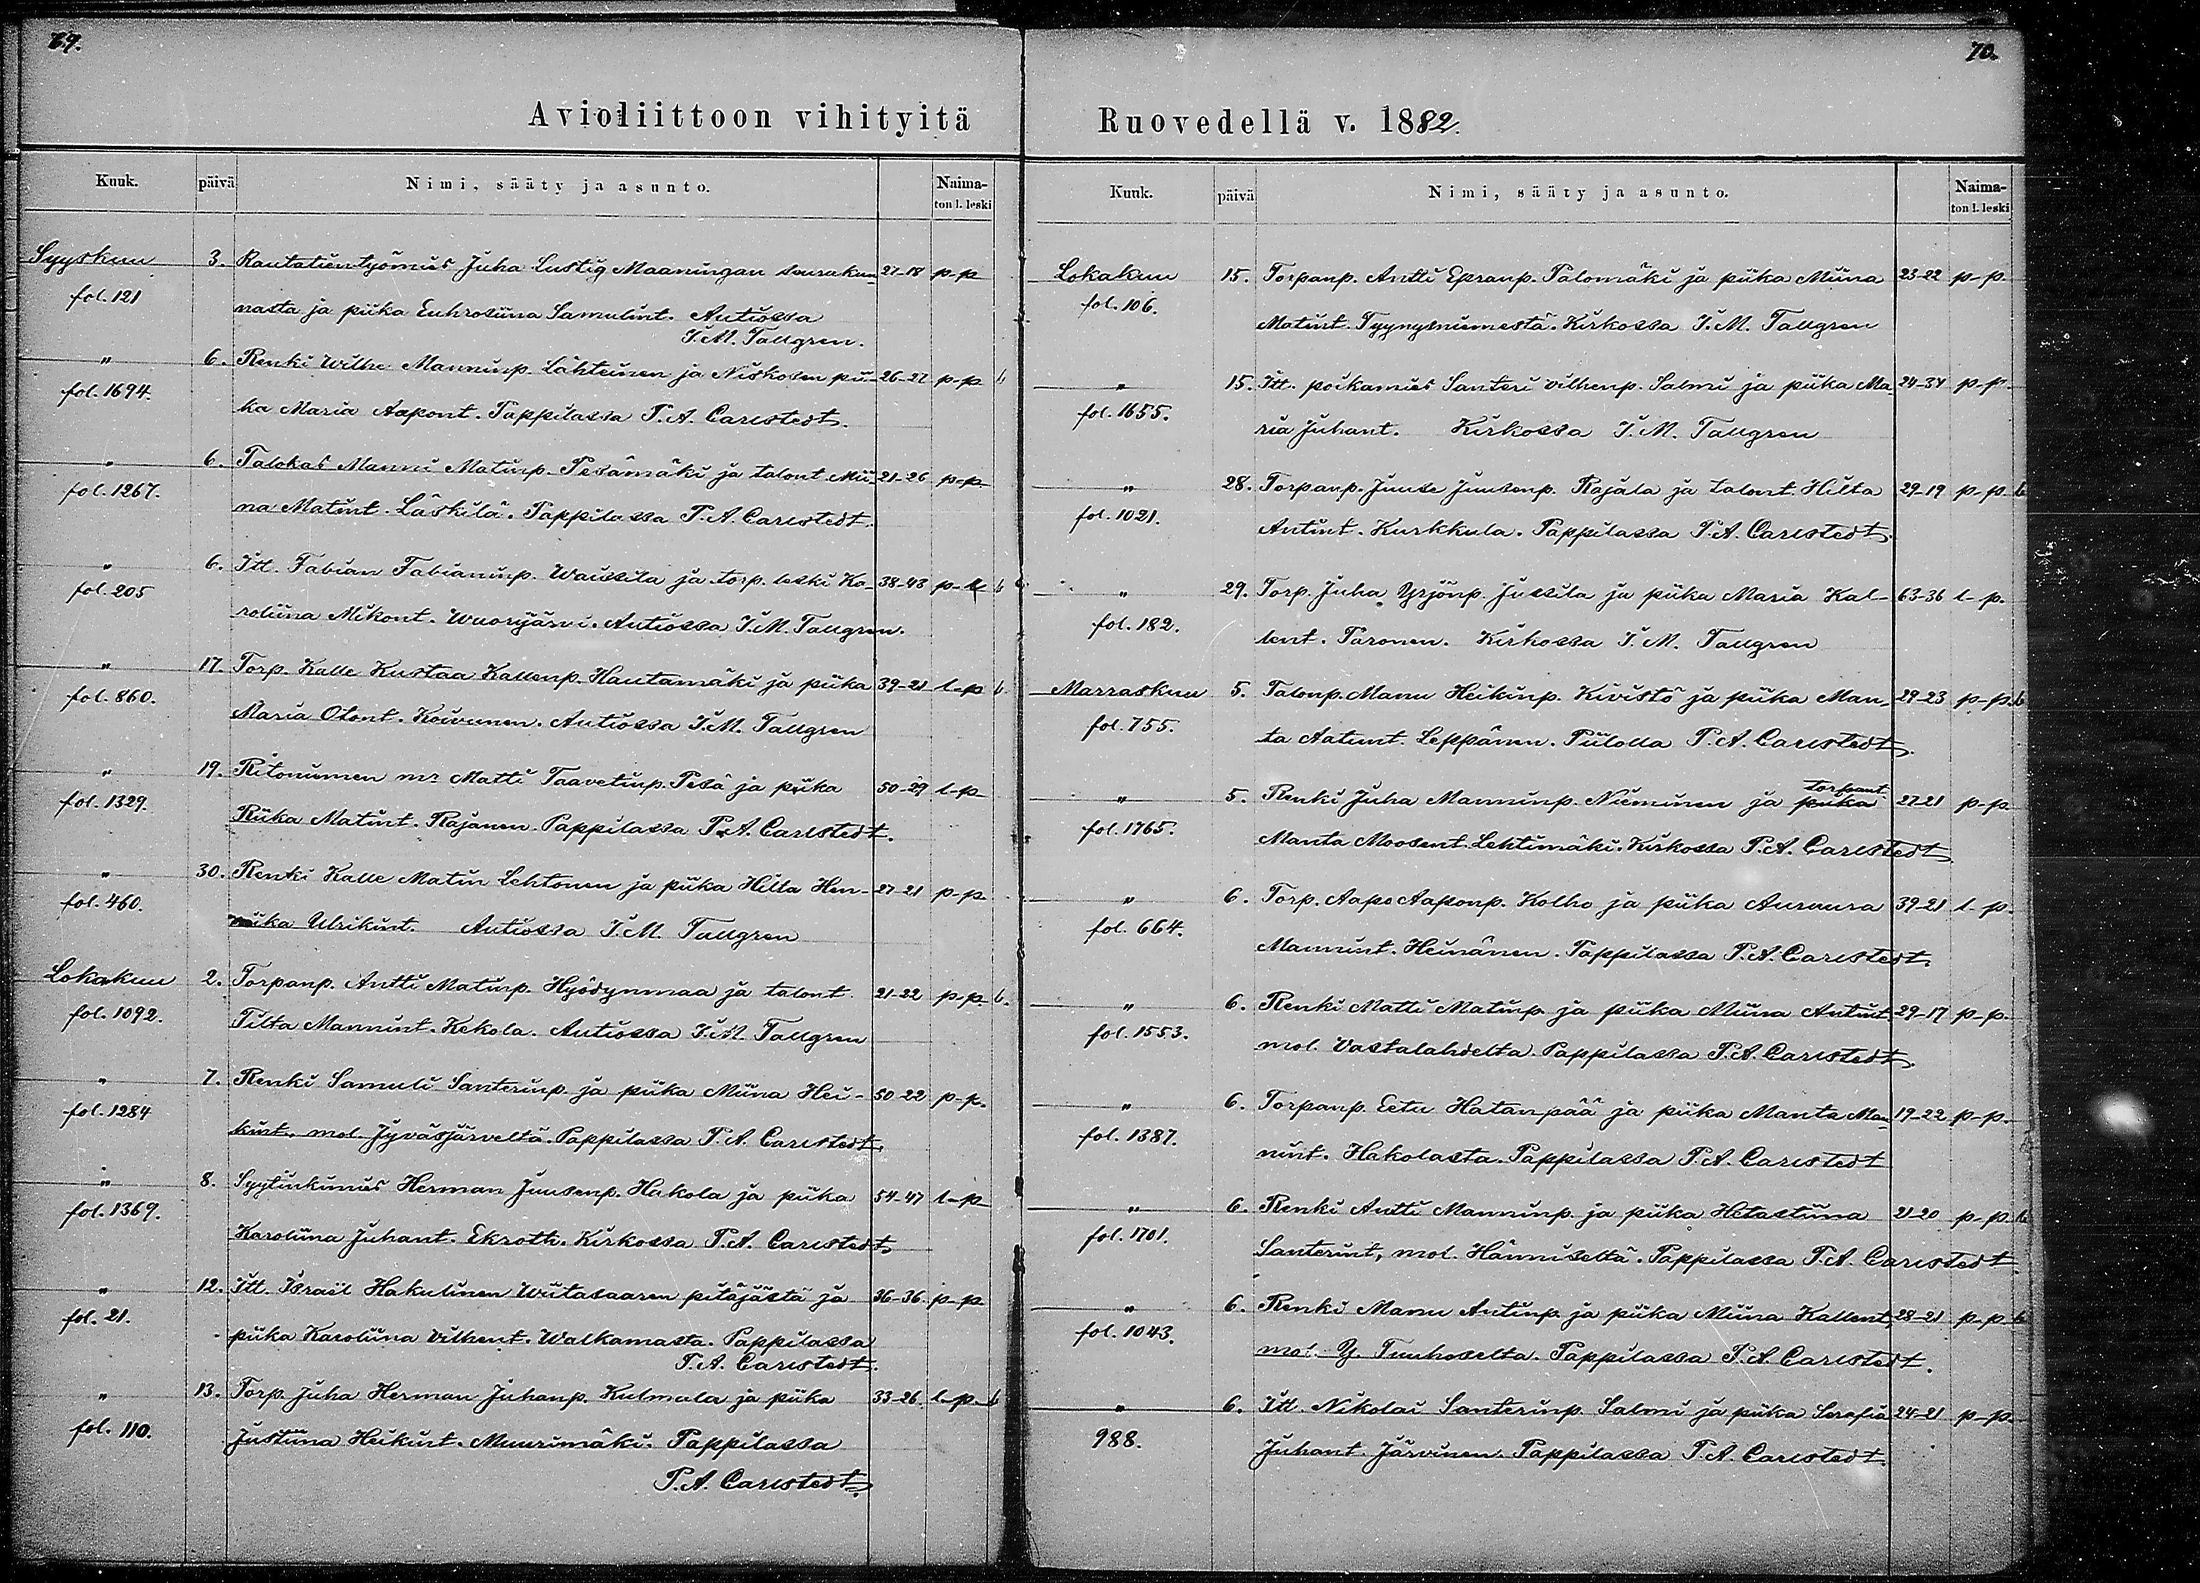 69.
Avioliittoon vihityitä
Kuuk. päivä Nimi, sääty ja asunto. Naima-
ton l. leski
Syyskuu 3. Rautatientyömies Juha Lustig Maaningan seurakun- 27-18 p-p
fol. 121 nasta ja piika Euhrosiina Samulint. Autiossa
I.M. Tallgren.
" 6. Renki Wilhe Manninp. Lähteinen ja Niskosen pii- 26-27 p-p b
fol. 1694. ka Maria Aapont. Pappilassa T.A. Carlstedt.
" 6. Talokas Manni Matinp. Pesämäki ja talont. Mii- 21-26 p-p
fol. 1267. na Matint. Läskilä. Pappilassa T.A. Carlstedt.
" 6. Itt. Fabian Fabianinp. Waissila ja torp. leski Ka- 38-43 p-l b
fol. 205 roliina Mikont. Wuorijärvi. Autiossa I.M. Tallgren.
" 17. Torp. Kalle Kustaa Kallenp. Hautamäki ja piika 39-21 l-p b
fol. 860. Maria Otont. Koivunen. Autiossa I.M. Tallgren
" 19. Ritonumen mr Matti Taavetinp. Pesä ja piika 50-29 l-p
fol. 1329. Riika Matint. Rajanen. Pappilassa T.A. Carlstedt.
" 30. Renki Kalle Matin Lehtonen ja piika Hilta Hen- 27-21 p-p
fol. 460. riika Ulrikint. Autiossa I.M. Tallgren
Lokakuu 2. Torpanp. Antti Matinp. Hyödynmaa ja talont. 21-22 p-p b.
fol. 1092. Tilta Mannint. Kekola. Autiossa I.M. Tallgren
" 7. Renki Samuli Santerinp. ja piika Miina Hei- 50-22 p-p.
fol. 1284 kint. mol. Jyväsjärveltä. Pappilassa T.A. Carlstedt.
" 8. Syytinkimies Herman Juusenp. Hakola ja piika 54-47 l-p
fol. 1369. Karoliina Juhant. Ekroth. Kirkossa T.A. Carlstedt
" 12. Itt. Israil Hakulinen Wiitasaaren pitäjästä ja 36-36 p-p
fol. 21. piika Karoliina Vilhent. Walkamasta. Pappilassa
T.A. Carlstedt.
" 13. Torp. Juha Herman Juhanp. Kulmala ja piika 33-26. l-p b
fol. 110. Justiina Heikint. Muurimäki. Pappilassa
T.A. Carlstedt.
70.
Ruovedellä v. 1882.
Kuuk. päivä Nimi, sääty ja asunto. Naima-
ton l. leski
Lokakuu 15. Torpanp. Antti Epranp. Talomäki ja piika Miina 23-22 p-p
fol. 106. Matint. Tyynysniemestä. Kirkossa I.M. Tallgren
" 15. Itt. poikamies Santeri Vilhenp. Salmi ja piika Ma- 24-34 p-p
fol. 1655. ria Juhant. Kirkossa I.M. Tallgren
" 28. Torpanp. Juuse Juusenp. Rajala ja talont. Hilta 29-19 p-p b
fol. 1021. Antint. Kurkkula. Pappilassa T.A. Carlstedt.
" 29. Torp. Juha Yrjönp. Jussila ja piika Maria Kal- 63-36 l-p.
fol. 182. lent. Paronen. Kirkossa I.M. Tallgren
Marraskuu 5. Talonp. Manu Heikinp. Kivistö ja piika Man- 29-23 p-p. b
fol. 755. ta Aatunt. Leppänen. Piilolla T.A. Carlstedt.
torpant
" 5. Renki Juha Manninp. Nieminen ja piika 27-21 p-p
fol. 1765. Manta Moosent. Lehtimäki. Kirkossa T.A. Carlstedt
" 6. Torp. Aapo Aaponp. Kolho ja piika Auruura 39-21 l-p.
fol. 664. Mannint. Heinänen. Pappilassa T.A. Carlstedt.
" 6. Renki Matti Matinp. ja piika Miina Antint 29-17 p-p.
fol. 1553. mol. Vastalahdelta. Pappilassa T.A. Carlstedt
" 6. Torpanp. Eetu Hatanpää ja piika Manta Man- 19-22 p-p.
fol. 1387. nint. Hakolasta. Pappilassa T.A. Carlstedt
" 6. Renki Antti Manninp. ja piika Hetastiina 21-20 p-p. b
fol. 1701. Santerint, mol. Hänniseltä. Pappilassa T.A. Carlstedt.
" 6. Renki Manu Antinp. ja piika Miina Kallent. 28-21 p-p b
fol. 1043. mol. Y. Tuuhoselta. Pappilassa T.A. Carlstedt.
" 6. Itt. Nikolai Santerinp. Salmi ja piika Serafia 24-21 p-p.
988. Juhant. Järvinen. Pappilassa T.A. Carlstedt.